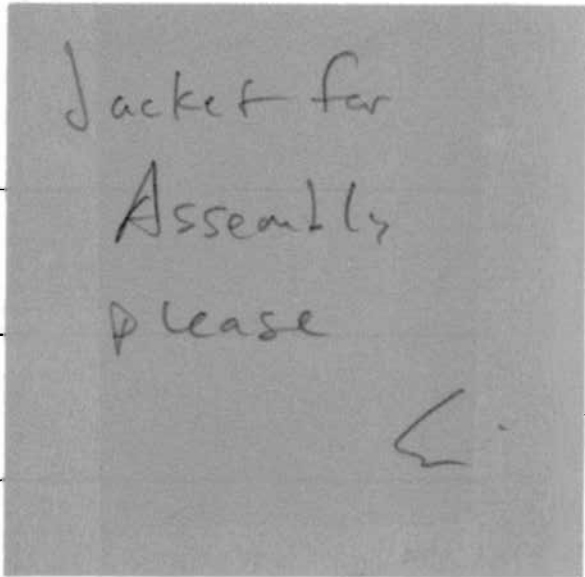 Jacket for
Assembly
please